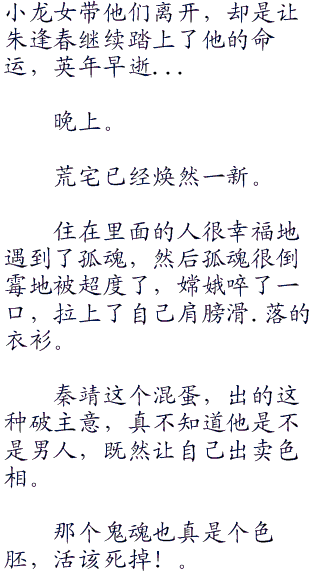 小龙女带他们离开，却是让
朱逢春继续踏上了他的命
运，英年早逝...
晚上。
荒宅已经焕然一新。
住在里面的人很幸福地
遇到了孤魂，然后孤魂很倒
霉地被超度了，嫦娥啐了一
口，拉上了自己肩膀滑.落的
衣衫。
秦靖这个混蛋，出的这
种破主意，真不知道他是不
是男人，既然让自己出卖色
相。
那个鬼魂也真是个色
胚，活该死掉！。